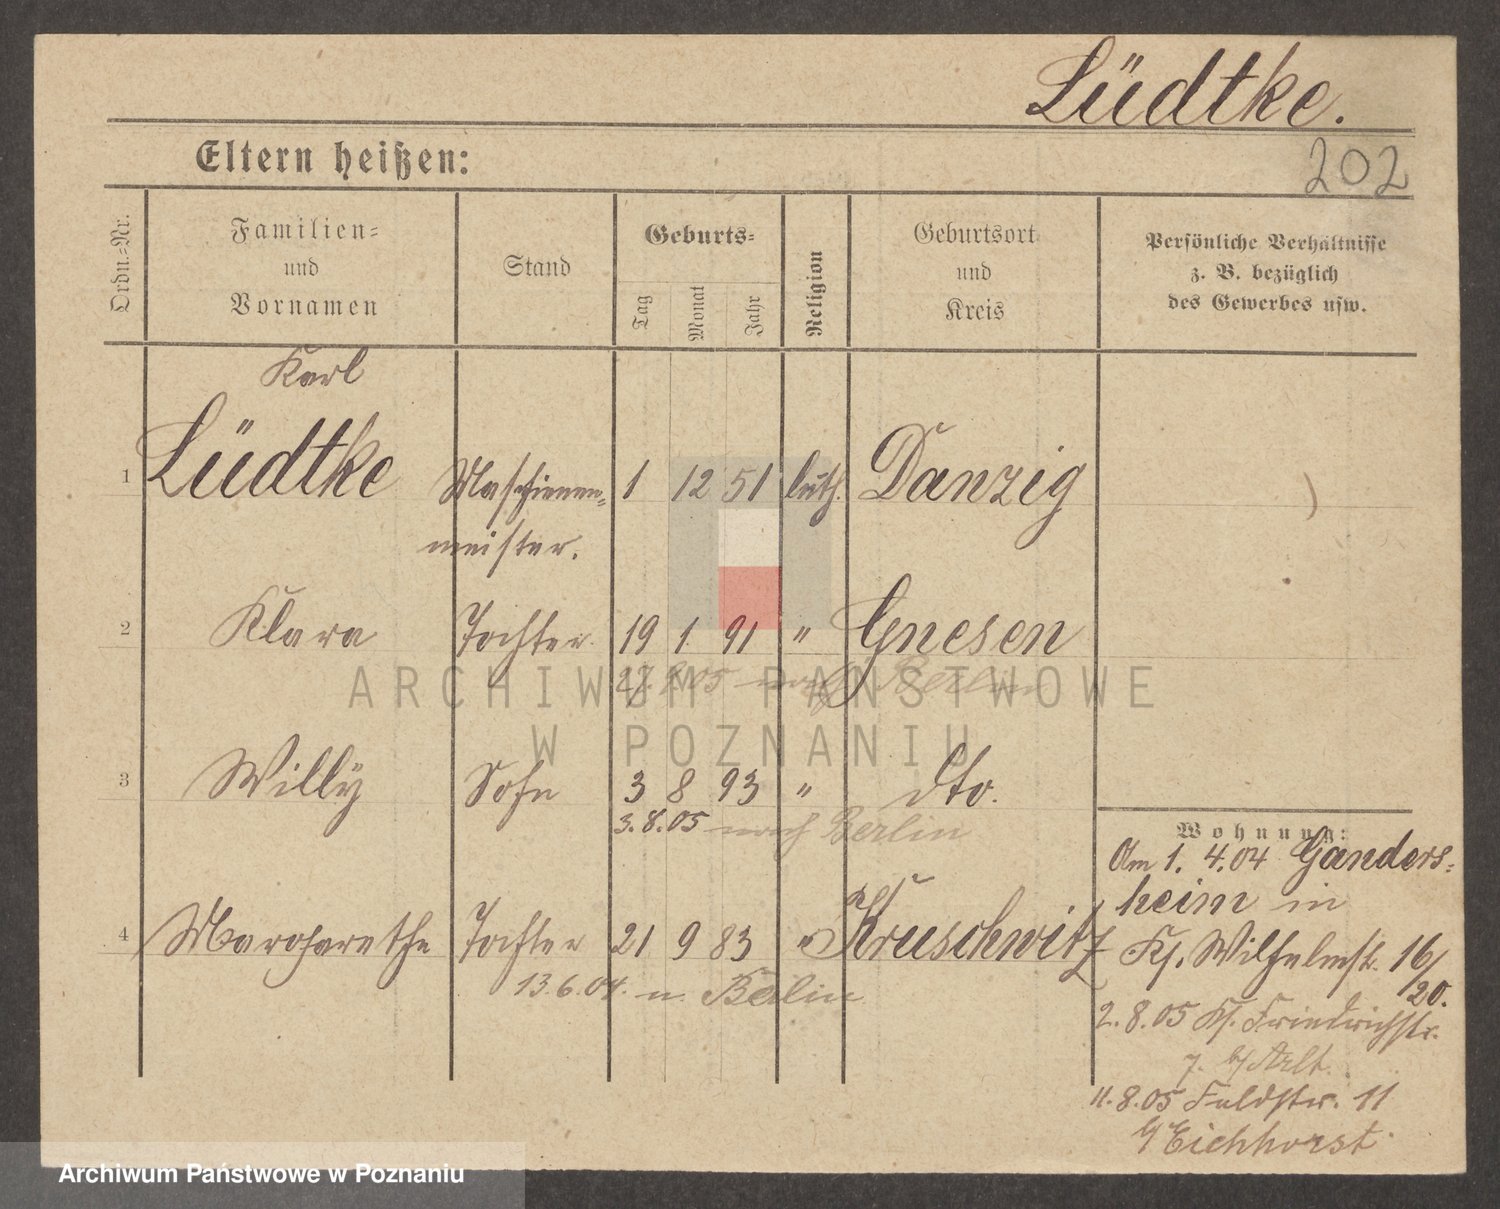 Lüdtke.
Eltern heißen:
202
Ordn.-Nr.
Familien-
und
Vornamen
Stand
Geburts-
Tag
Monat
Jahr
Religion
Geburtsort
und
Kreis
Persönliche Verhältnisse
z. B. bezüglich
des Gewerbes usw.
Karl
1 Lüdtke Maschienen- 1 12 51 luth. Danzig
meister.
2 Klara Tochter 19 1. 91 " Gnesen
27. 8. 05 nach Berlin
3 Willÿ Sohn 3 8 93 " dto.
3. 8. 05 nach Berlin
4 Margarethe Tochter 21 9 83 " Kruschwitz
13. 6. 04. n. Berlin
Wohnung:
Am 1. 4. 04 Ganders-
heim in
Ks. Wilhelmstr. 16/
20.
2. 8. 05 Ks. Friedrichstr.
7. b/ Arlt.
11. 8. 05 Feldstr. 11
b/ Eichhorst.
ARCHIWUM PAŃSTWOWE
W POZNANIU
Archiwum Państwowe w Poznaniu